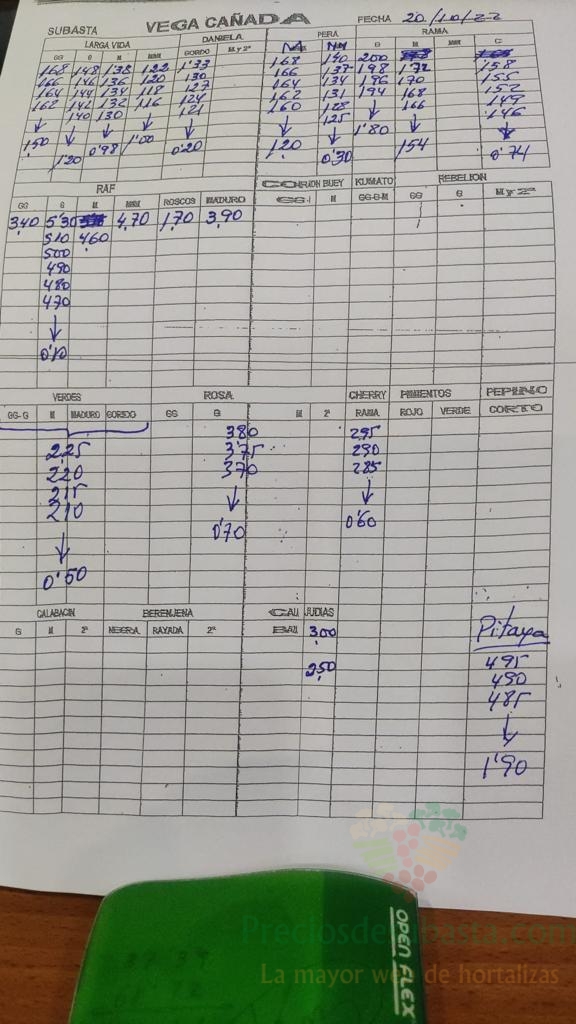 SUBASTA VEGA CAÑADA FECHA 20/10/22
LARGA VIDA DANIELA PERA RAMA
GG G M MMM GORDO M y 2ª M MM G M MM C
168 148 1'38 122 1'33 168 140 200 158
166 146 136 120 130 166 137 198 172 155
164 144 134 118 127 164 134 196 170 152
162 142 132 116 124 162 131 194 168 149
140 130 121 160 128 166 146
125
150 1'20 0'98 1'00 0'20 120 0'30 1'80 154 0'74
RAF CORION BUEY KUMATO REBELION
GG G M MMM ROSCOS MADURO GG M GG-G-M GG G M y 2ª
340 5'30 4,70 1,70 3,90
510 460
500
490
480
470
0'10
VERDES ROSA CHERRY PIMIENTOS PEPINO
GG-G M MADURO GORDO GG G M 2ª RAMA ROJO VERDE CORTO
380 295
225 375 290
220 370 285
215
210
0'70 0'60
0'50
CALABACIN BERENJENA JUDIAS
G M 2ª NEGRA RAYADA 2ª
300 Pitaya
250 495
490
485
1'90
OPEN FLEX
Preciosdesubasta.com
La mayor web de hortalizas